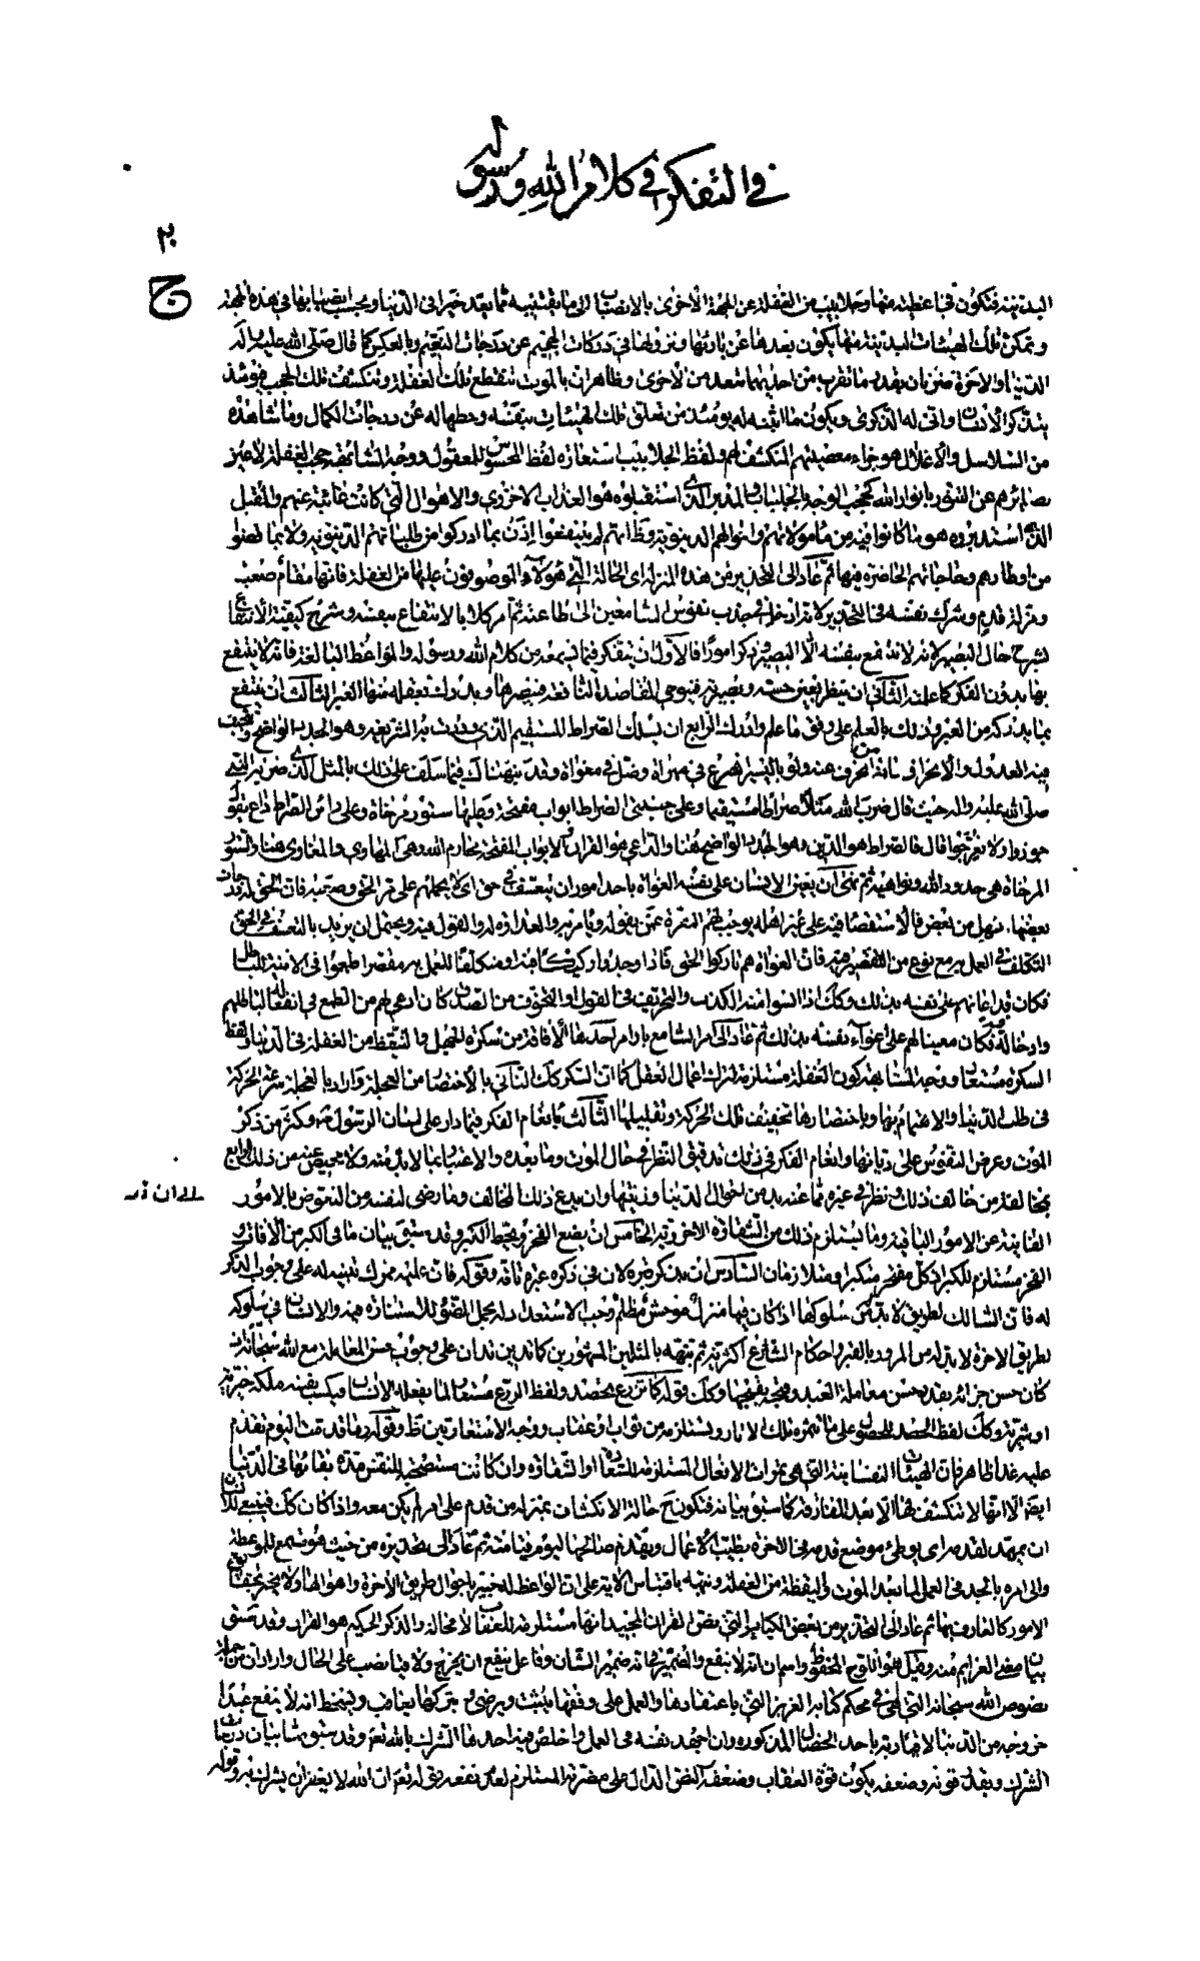 في التفكر في كلام الله ورسوله
ج ٢
البدنية فتكون في اغطية منها وجلابيب من الغفلة عن الجهة الاخرى بالانصباب الى ما يقتنيه مما يعد خيرا في الدنيا وبحسب انصبابها في هذه الجهة
وتمكن تلك الهيئات البدنية منها يكون بعدها عن بارئها ونزولها في دركات الجحيم عن درجات النعيم وبالعكس كما قال صلى الله عليه وآله
الدنيا والاخرة ضرتان بقدر ما تقرب من احديهما تبعد من الاخرى وظاهر ان بالموت تنقطع تلك الغفلة وتنكشف تلك الحجب فيومئذ
يتذكر الانسان وانى له الذكرى ويكون ما اثبته له يومئذ من تعلق تلك الهيئات بنفسه وحطها له عن درجات الكمال وما شاهده
من السلاسل والاغلال هو جزاء معصيتهم المنكشف لهم ولفظ الجلابيب استعارة لفظ المحسوس للمعقول ووجه المشابهة حجب الغفلة لاعين
بصائرهم عن التنور بانوار الله كحجب الوجه بالجلباب والمدبر الذي استقبلوه هو العذاب الاخروي والاهوال التي كانت غائبة عنهم والمقبل
الذي استدبروه هو ما كانوا فيه من مأمولاتهم واحوالهم الدنيوية وظ انهم لم ينتفعوا اذن بما ادركوا من طلباتهم الدنيوية ولا بما قضوا
من اوطارهم وحاجاتهم الحاضرة فيها ثم عاد الى التحذير من هذه المنزلة اي الحالة التي هؤلاء الموصوفون عليها من الغفلة فانها مقام صعب
ومزلة قدم وشرك نفسه في التحذير لانه ادخل في جذب نفوس السامعين الى طاعته ثم امر كلا بالانتفاع بنفسه وشرح كيفية الانتفاع
بشرح حال البصير لانه لا ينتفع بنفسه الا البصير وذكر امورا فالاول ان يتفكر فيما يسمعه من كلام الله ورسوله والمواعظ البالغة فانه لا ينتفع
بها بدون الفكر كما علمت الثاني ان ينظر بعين حسه وبصيرته فيتوخى المقاصد النافعة فيبصرها ويدرك بعقله منها العبر الثالث ان ينتفع
بما يدركه من العبر وذلك بالعلم على وفق ما علم وادرك الرابع ان يسلك الصراط المستقيم الذي وردت به الشريعة وهو الجدد الواضح ويجتنب
فيه العدول والانحراف فان المنحرف عنه ولو باليسير يصرع في مهواة وضل في مغواة وقد نبهناك فيما سلف على ذلك بالمثل الذي ضربه النبي
صلى الله عليه وآله حيث قال ضرب الله مثلا صراطا مستقيما وعلى جنبتي الصراط ابواب مفتحة وعليها ستور مرخاة وعلى رأس الصراط داع يقول
جوزوا ولا تعرجوا قال فالصراط هو الدين وهو الجدد الواضح هنا والداعي هو القرآن والابواب المفتحة محارم الله وهي المهاوي والمغاوي هنا والستور
المرخاة هي حدود الله ونواهيه ثم نهى ان يعين الانسان على نفسه الغواة باحد امور ان يتعسف في حق اي لا يحملهم على مر الحق وصعبه فان للحق درجات
بعضها سهل من بعض فالاستقصاء فيه على غير اهله يوجب لهم النفرة عمن يقوله ويأمر به والعداوة له والقول فيه ويحتمل ان يريد بالتعسف في الحق
التكلف في العمل به مع نوع من التقصير فيه فان الغواة هم تاركوا الحق فاذا وجدوا
فكان قد اعانهم على نفسه بذلك وكك اذا انسوا منه الكذب والتحريف في القول او التخوف من الصدق كان ادعى لهم من الطمع في انفعاله لباطلهم
وادخاله فيه فكان معينا لهم على اغواء نفسه بذلك ثم عاد الى امر السامع باوامر احدها الافاقة من سكرة الجهل والتيقظ من الغفلة في الدنيا ولفظ
السكرة مستعار ووجه المشابهة كون الغفلة مستلزمة لترك اعمال العقل كما ان السكر كك الثاني بالاختصار من العجلة واراد بالعجلة سرعة الحركة
في طلب الدنيا والاهتمام بها وباختصارها تخفيف تلك الحركة وتقليلها الثالث بانعام الفكر فيما دار على لسان الرسول ص وكثر من ذكر
الموت وعرض النفوس على ديانها وانعام الفكر في ذلك تدقيق النظر في حال الموت وما بعده والاعتبار بما لا بد منه ولا محيص عنه من ذلك الرابع
بمخالفة من خالف ذلك ونظر في غيره مما عنه بد من احوال الدنيا وزينتها وان يدع ذلك المخالف وما رضى لنفسه من التعوض بالامور
الفانية عن الامور الباقية وما يستلزم ذلك من الشقاوة الاخروية الخامس ان يضع الفخر ويحط الكبر وقد سبق بيان ما في الكبر من الآفات و
الفخر مستلزم للكبر اذ كل مفتخر متكبر وهما متلازمان السادس ان يذكر قبره لان في ذكره عبرة تامة وقوله فان عليه ممرك تنبيه له على وجوب الذكر
له فان السالك لطريق لا بد من سلوكها اذا كان فيها منزل موحش مظلم وجب الاستعداد له بحمل الضوء للاستنارة فيه والانسان في سلوكه
لطريق الاخرة لا بد له من المرور بالقبر واحكام الشارع اكثرية ثم نبهه بالمثلين المشهورين كما تدين تدان على وجوب حسن المعاملة مع الله سبحانه اذ
كان حسن جزائه بقدر حسن معاملة العبد وقبحه بقبحها وكك قوله كما تزرع تحصد ولفظ الزرع مستعار لما يفعله الانسان ويكسب نفسه ملكة خيرية
او شرية وكك لفظ الحصد للحصول على ما تثمره تلك الآثار ويستلزمه من ثواب او عقاب ووجه الاستعارتين ظ وقوله وما قدمت اليوم تقدم
عليه غدا ظاهر فان الهيئات النفسانية التي هي ثمرات الافعال المستلزمة للسعادة او الشقاوة وان كانت مستصحبة للنفس مدة بقائها في الدنيا
ايضا الا انها لا تنكشف لها الا بعد المفارقة كما سبق بيانه فتكون ح حالة الانكشاف بمنزلة من قدم على امر لم يكن معه واذا كان كك فينبغي للانسان
ان يمهد لقدمه اي يوطئ موضع قدمه في الاخرة بطيب الاعمال ويقدم صالحها ليوم قيامته ثم عاد الى تحذيره من حيث هو مستمع للموعظة
والى امره بالجد في العمل لما بعد الموت واليقظة من الغفلة ونبهه باقتباس الاية على ان الواعظ له خبير باحوال طريق الاخرة واهوالها ولا يخبر بحقائق
الامور كالعارف بها ثم عاد الى التحذير من بعض الكبائر التي نص القرآن المجيد انها مستلزمة للعقاب لا محالة والذكر الحكيم هو القرآن وقد سبق
بيان معنى العزائم منه وقيل هو اللوح المحفوظ واسم ان انه لا ينفع والضمير في انه ضمير الشان وفاعل ينفع ان يخرج ولاقيا نصب على الحال واراد ان من جملة
نصوص الله سبحانه التي هي في محكم كتابه العزيز التي باعتقادها والعمل على وفقها يثيب ويرضى وبتركها يعاقب ويسخط انه لا ينفع عبدا
خروجه من الدنيا لاقيا ربه باحد الخصال المذكورة وان اجهد نفسه في العمل واخلص فيه احدها الشرك بالله تعالى وقد سبق منا بيان درجات
الشرك وبقدر قوته وضعفه يكون قوة العقاب وضعفه والنص الدال على مضرته المستلزم لعدم نفعه قوله تعالى ان الله لا يغفر ان يشرك به وقوله